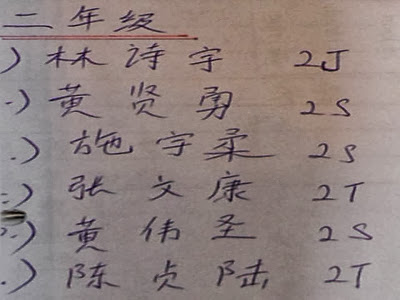 二年级
) 林诗宇 2J
.) 黄贤勇 2S
.) 施宇柔 2S
) 张文康 2T
) 黄伟圣 2S
.) 陈贞陆 2T